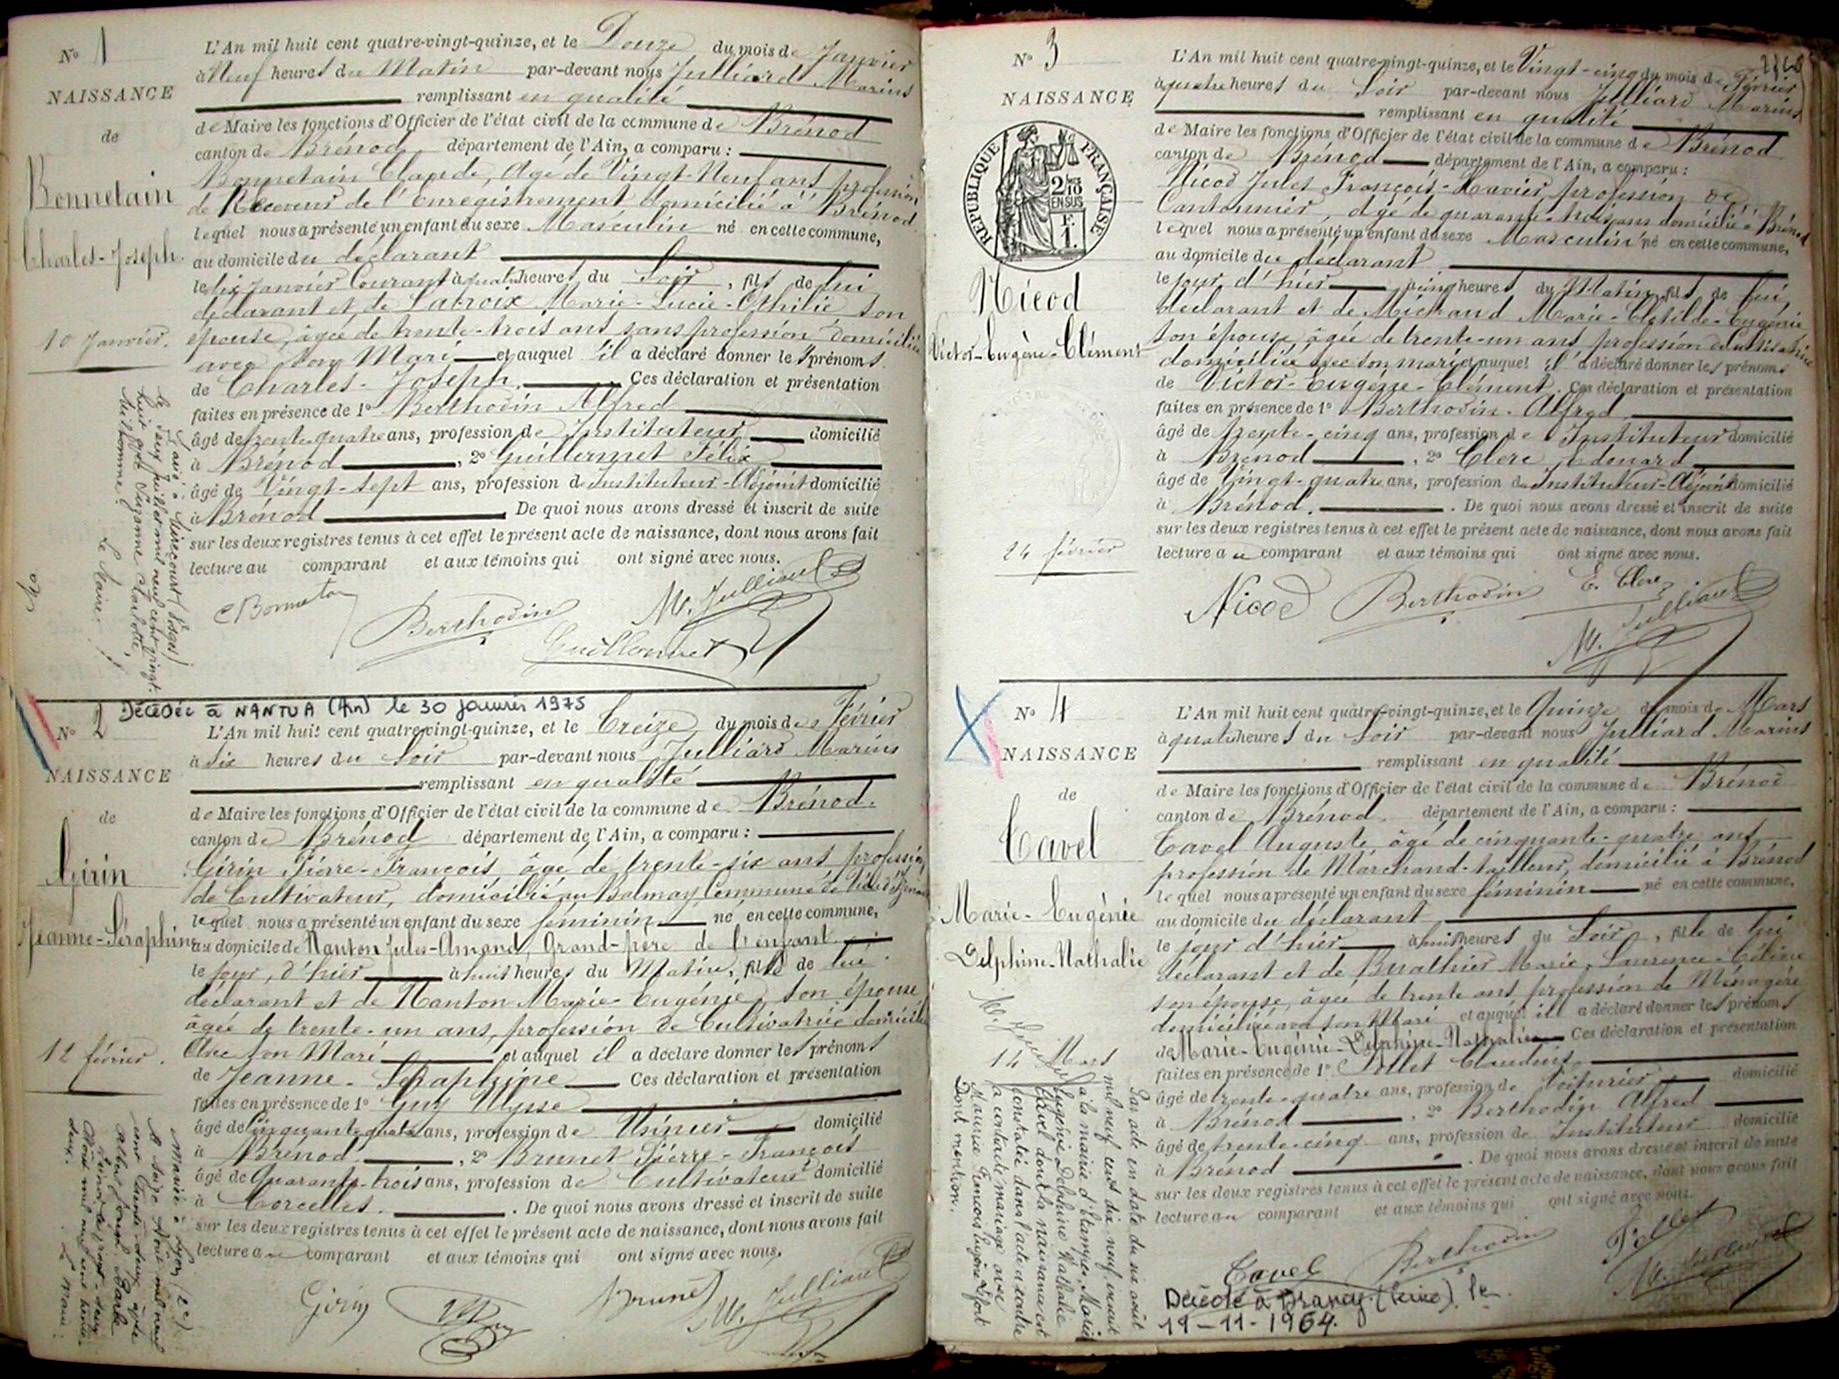 N° 1
NAISSANCE
de
Bonnetain
Charles-Joseph.
10 Janvier.
L'An mil huit cent quatre-vingt-quinze, et le Douze du mois de Janvier
à Neuf heures du Matin par-devant nous Julliard Marius
remplissant en qualité
de Maire les fonctions d'Officier de l'état civil de la commune de Brénod
canton de Brénod département de l'Ain, a comparu :
Bonnetain Claude, âgé de Vingt-Neuf ans, profession
de Receveur de l'Enregistrement domicilié à Brénod
lequel nous a présenté un enfant du sexe Masculin né en cette commune,
au domicile du déclarant
le dix Janvier Courant à quatre heures du Soir, fils de lui
déclarant et de Lacroix Marie-Lucie-Othilie son
épouse, âgée de trente-trois ans sans profession domiciliée
avec son Mari et auquel il a déclaré donner les prénoms
de Charles-Joseph. Ces déclaration et présentation
faites en présence de 1° Berthodin Alfred
âgé de trente-quatre ans, profession de Instituteur domicilié
à Brénod, 2° Guillermet Félix
âgé de Vingt-sept ans, profession de Instituteur-Adjoint domicilié
à Brénod De quoi nous avons dressé et inscrit de suite
sur les deux registres tenus à cet effet le présent acte de naissance, dont nous avons fait
lecture au comparant et aux témoins qui ont signé avec nous.
C Bonnetain
Berthodin
M. Julliard
Guillermet
Marié à Mirecourt (Vosges)
le deux juillet mil neuf cent vingt-
Suzanne Charlotte
Le Maire
Décédée à NANTUA (Ain) le 30 janvier 1975
N° 2
NAISSANCE
de
Girin
Jeanne-Séraphine
12 février.
L'An mil huit cent quatre-vingt-quinze, et le Treize du mois de Février
à six heures du Soir par-devant nous Julliard Marius
remplissant en qualité
de Maire les fonctions d'Officier de l'état civil de la commune de Brénod.
canton de Brénod département de l'Ain, a comparu :
Girin Pierre-François, âgé de trente-six ans profession
de Cultivateur, domicilié au Balmay Commune de Vieu-d'Izenave
lequel nous a présenté un enfant du sexe féminin né en cette commune,
au domicile de Nanton Jules-Amand, Grand-père de l'enfant
le jour d'hier à huit heures du Matin, fille de lui
déclarant et de Nanton Marie-Eugénie, son épouse
âgée de trente-un ans, profession de Cultivatrice domiciliée
avec son Mari et auquel il a déclaré donner les prénoms
de Jeanne-Séraphine Ces déclaration et présentation
faites en présence de 1° Guy Ulysse
âgé de Cinquante-quatre ans, profession de Usinier domicilié
à Brénod, 2° Brunet Pierre-François
âgé de Quarante-trois ans, profession de Cultivateur domicilié
à Corcelles. De quoi nous avons dressé et inscrit de suite
sur les deux registres tenus à cet effet le présent acte de naissance, dont nous avons fait
lecture au comparant et aux témoins qui ont signé avec nous.
Girin
Brunet
M. Julliard
Mariée à Lyon (2e)
le onze Août mil neuf
cent trente-deux avec
Albert Joseph Barbe
Le Maire
N° 3
NAISSANCE
REPUBLIQUE FRANÇAISE
2/10 EN SUS
F.
1.
Nicod
Victor-Eugène-Clément
24 février
L'An mil huit cent quatre-vingt-quinze, et le Vingt-cinq du mois de Février
à quatre heures du Soir par-devant nous Julliard Marius
remplissant en qualité
de Maire les fonctions d'Officier de l'état civil de la commune de Brénod
canton de Brénod département de l'Ain, a comparu :
Nicod Jules François-Xavier, profession de
Cantonnier, âgé de quarante-trois ans domicilié à Brénod
lequel nous a présenté un enfant du sexe Masculin né en cette commune,
au domicile du déclarant
le jour d'hier à cinq heures du Matin, fils de lui
déclarant et de Michaud Marie-Clotilde-Eugénie
son épouse âgée de trente-un ans profession de
domiciliée avec son mari et auquel il a déclaré donner les prénoms
de Victor-Eugène-Clément. Ces déclaration et présentation
faites en présence de 1° Berthodin-Alfred
âgé de Trente-cinq ans, profession de Instituteur domicilié
à Brénod, 2° Clerc Edouard
âgé de Vingt-quatre ans, profession de Instituteur-Adjoint domicilié
à Brénod. De quoi nous avons dressé et inscrit de suite
sur les deux registres tenus à cet effet le présent acte de naissance, dont nous avons fait
lecture au comparant et aux témoins qui ont signé avec nous.
Nicod
Berthodin
E. Clerc
M. Julliard
N° 4
NAISSANCE
de
Tavel
Marie-Eugénie
Delphine-Nathalie
14 Mars
L'An mil huit cent quatre-vingt-quinze, et le Quinze du mois de Mars
à quatre heures du Soir par-devant nous Julliard Marius
remplissant en qualité
de Maire les fonctions d'Officier de l'état civil de la commune de Brénod
canton de Brénod département de l'Ain, a comparu :
Tavel Auguste, âgé de cinquante-quatre ans
profession de Marchand-tailleur, domicilié à Brénod
lequel nous a présenté un enfant du sexe féminin né en cette commune,
au domicile du déclarant
le jour d'hier à huit heures du Soir, fille de lui
déclarant et de Buathier Marie-Laurence-Céline
son épouse, âgée de trente ans profession de Ménagère
domiciliée avec son Mari et auquel il a déclaré donner les prénoms
de Marie-Eugénie-Delphine-Nathalie Ces déclaration et présentation
faites en présence de 1° Tollet Claudius
âgé de trente-quatre ans, profession de Voiturier domicilié
à Brénod, 2° Berthodin Alfred
âgé de trente-cinq ans, profession de Instituteur domicilié
à Brénod. De quoi nous avons dressé et inscrit de suite
sur les deux registres tenus à cet effet le présent acte de naissance, dont nous avons fait
lecture au comparant et aux témoins qui ont signé avec nous.
Tavel
Berthodin
Tollet
M. Julliard
Par acte en date du six août
mil neuf cent dix neuf, inscrit
à la mairie d'Etampes, Marie
Eugénie Delphine Nathalie
Tavel dont la naissance est
constatée dans l'acte ci-contre
a contracté mariage avec
Maurice François Eugène
Dont mention.
Décédée à Drancy (Seine), le
19-11-1964.